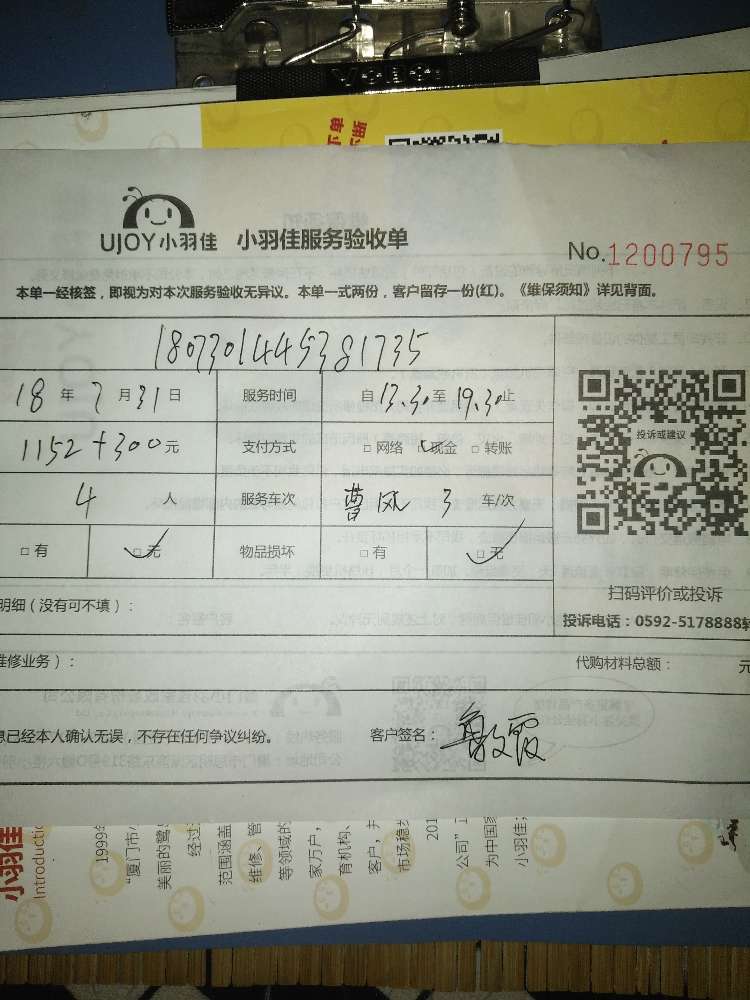 UJOY小羽佳 小羽佳服务验收单
No.1200795
本单一经核签，即视为对本次服务验收无异议。本单一式两份，客户留存一份(红)。《维保须知》详见背面。
1807301445381735
18 年 7 月 31 日 服务时间 自 13.30 至 19.30 止
1152+300 元 支付方式 □ 网络 □ 现金 □ 转账
4 人 服务车次 曹风 3 车/次
□ 有 □ 无 物品损坏 □ 有 □ 无
投诉或建议
扫码评价或投诉
投诉电话：0592-5178888转
明细（没有可不填）：
维修业务）： 代购材料总额： 元
息已经本人确认无误，不存在任何争议纠纷。 客户签名：
小羽佳
Introductio
1999年
"厦门市
美丽的鹭
经过
范围涵盖
维修、管
等领域的
家万户，
育机构、
客户，并
市场稳步
201
公司"
为中国家
小羽佳；